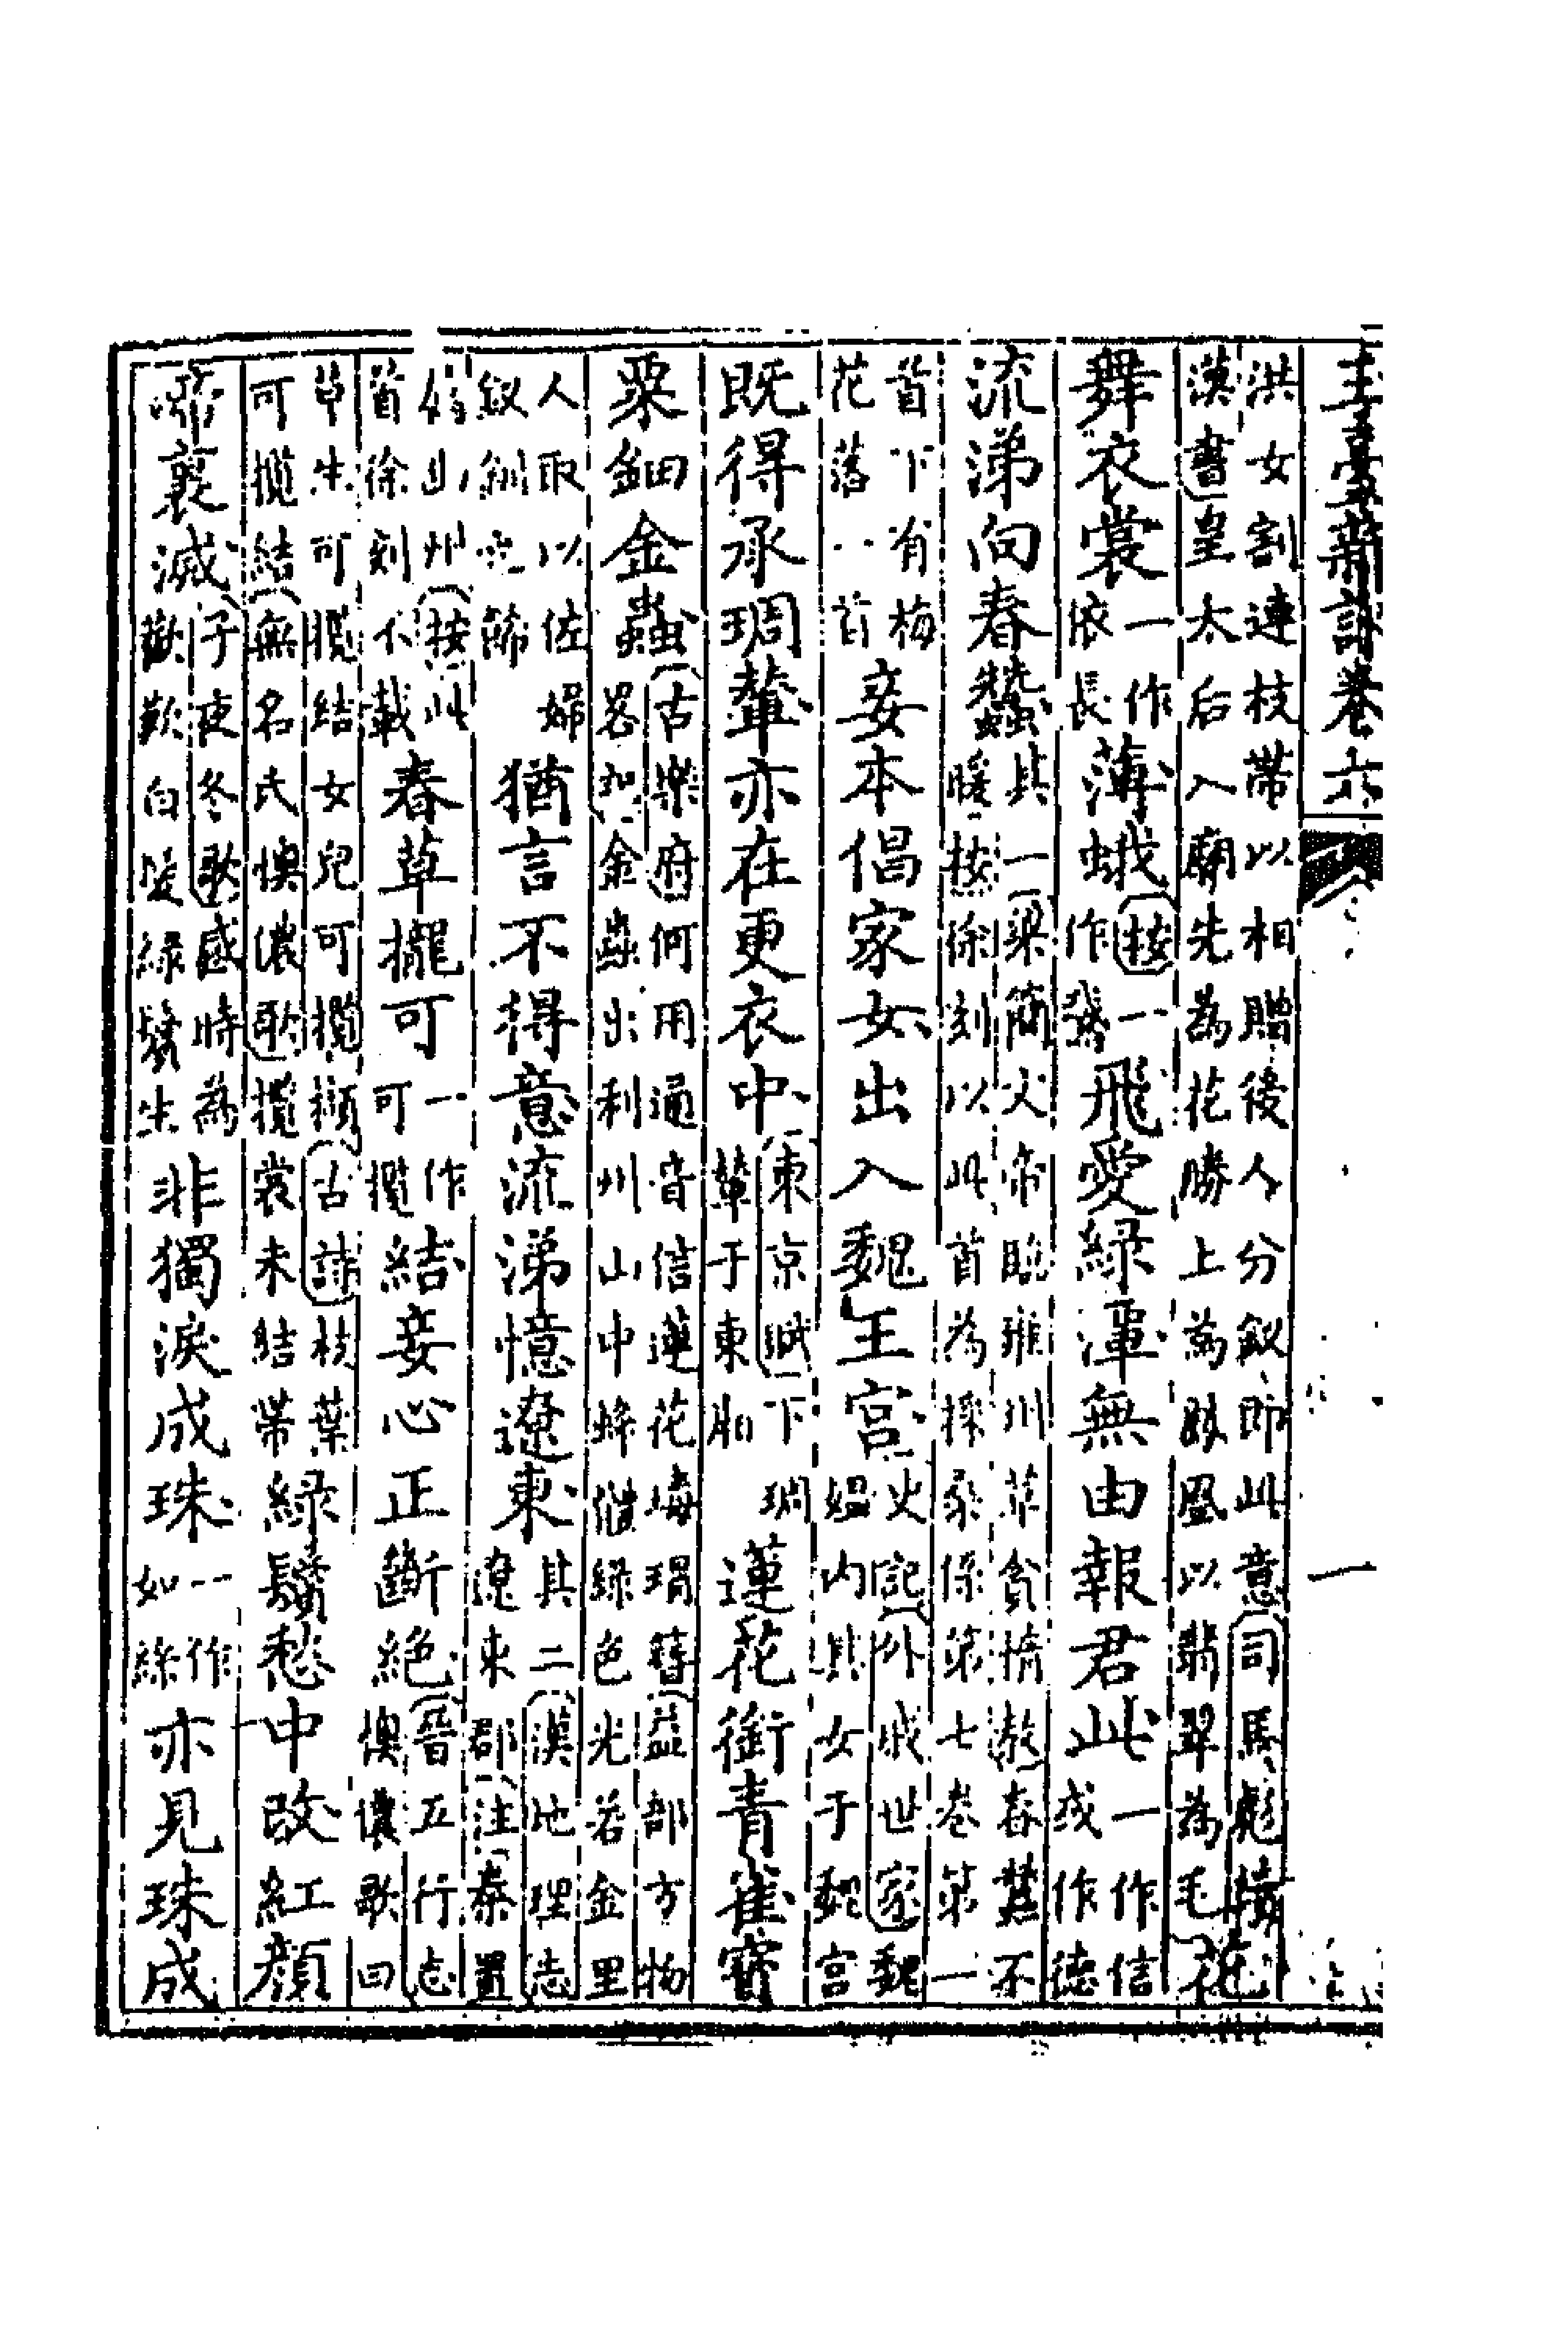 玉臺新詠卷六 一
洪女割連枝帶以相贈後人分釵即此意司馬彪續漢書皇太后入廟先為花勝上為鳳凰以翡翠為毛花
舞衣裳一作依長薄蛾按一作鵞飛愛綠潭無由報君此一作信或作德
流涕向春蠶其一梁簡文帝臨雍州革貪惰教春蠶不暖按徐刻以此首為採桑係第七卷第一
首下有梅花落一首妾本倡家女出入魏王宮史記外戚世家魏媼內其女于魏宮
既得承琱輦亦在更衣中東京賦下琱輦于東廂蓮花銜青雀寶
粟鈿金蟲古樂府何用通音信蓮花瑇瑁簪益部方物畧如金蟲出利州山中蜂體綠色光若金里
人取以佐婦釵釧之飾猶言不得意流涕憶遼東其二漢地理志遼東郡注秦置
屬幽州按此首徐刻不載春草攏可一作可攬結妾心正斷絕晉五行志懊儂歌曰
草生可攬結女兒可攬擷古詩枝葉可攬結無名氏懊儂歌攬裳未結帶綠鬢愁中改紅顏
啼裏滅子夜冬歌感時為歡歎白髮綠鬢生非獨淚成珠一作如絲亦見珠成